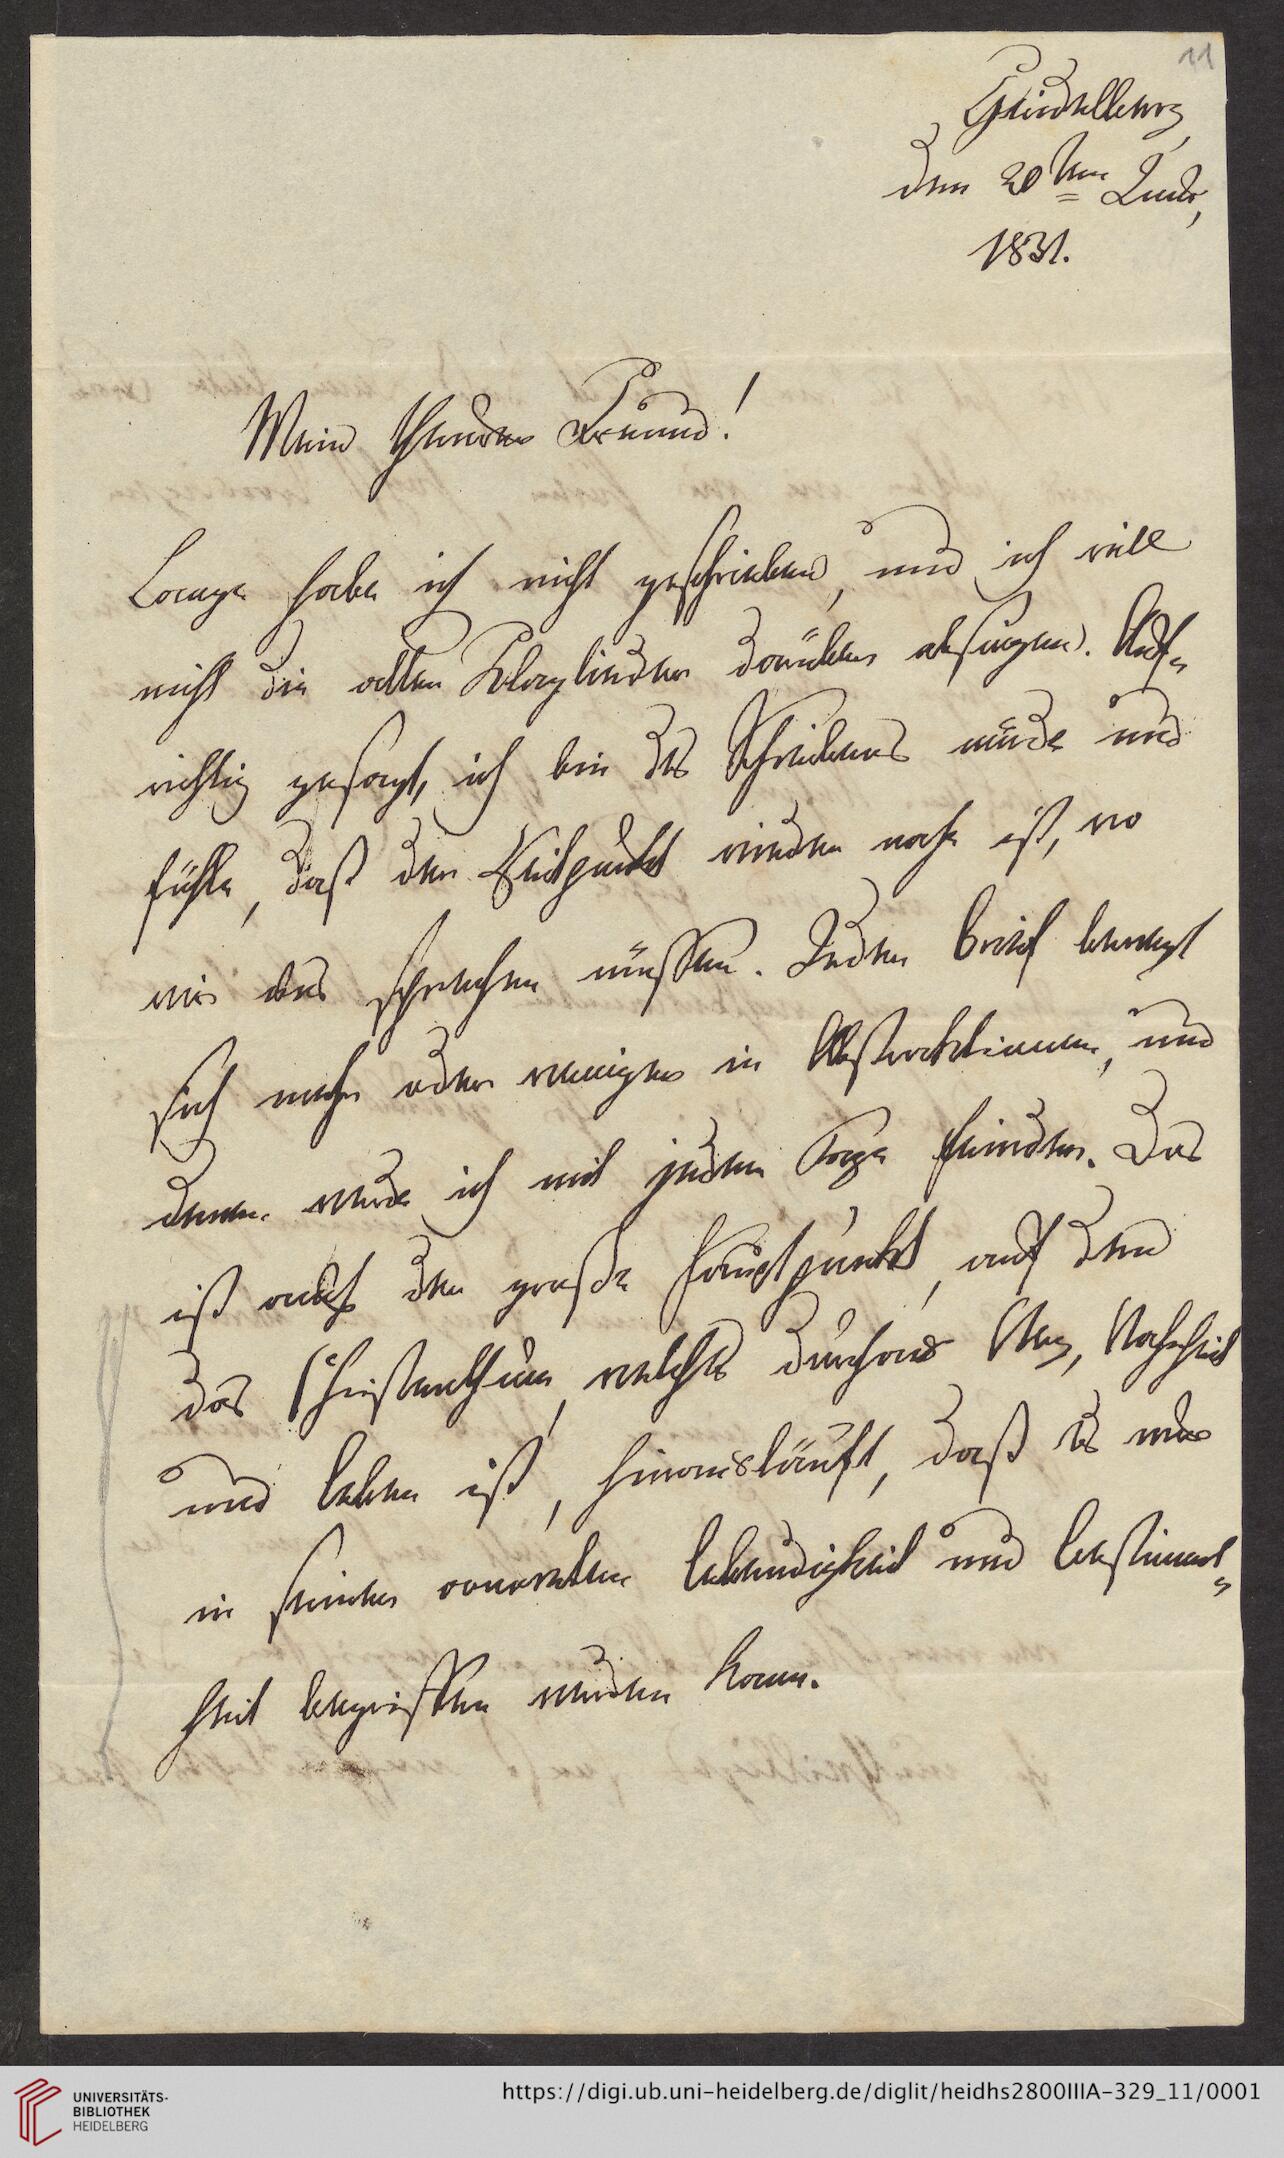 11
Heidelberg,
den 20ten Juli,
1831.
Mein theurer Freund!
Lange habe ich nicht geschrieben, und ich will
nicht die alten Klaglieder darüber absingen. Auf-
richtig gesagt, ich bin des Schreibens müde und
fühle, daß der Zeitpunkt wieder nahe ist, wo
wir uns sprechen müssen. Jeder Brief bewegt
sich mehr oder weniger in Abstraktionen, und
denen werde ich mit jedem Tage feinder. Das
ist auch der große Hauptpunkt, auf den
das Christenthum, welches durchaus Weg, Wahrheit
und Leben ist, hinausläuft, daß es nur
in seiner concreten Lebendigkeit und Bestimmt-
heit begriffen werden kann.
UNIVERSITÄTS-
BIBLIOTHEK
HEIDELBERG
https://digi.ub.uni-heidelberg.de/diglit/heidhs2800IIIA-329_11/0001